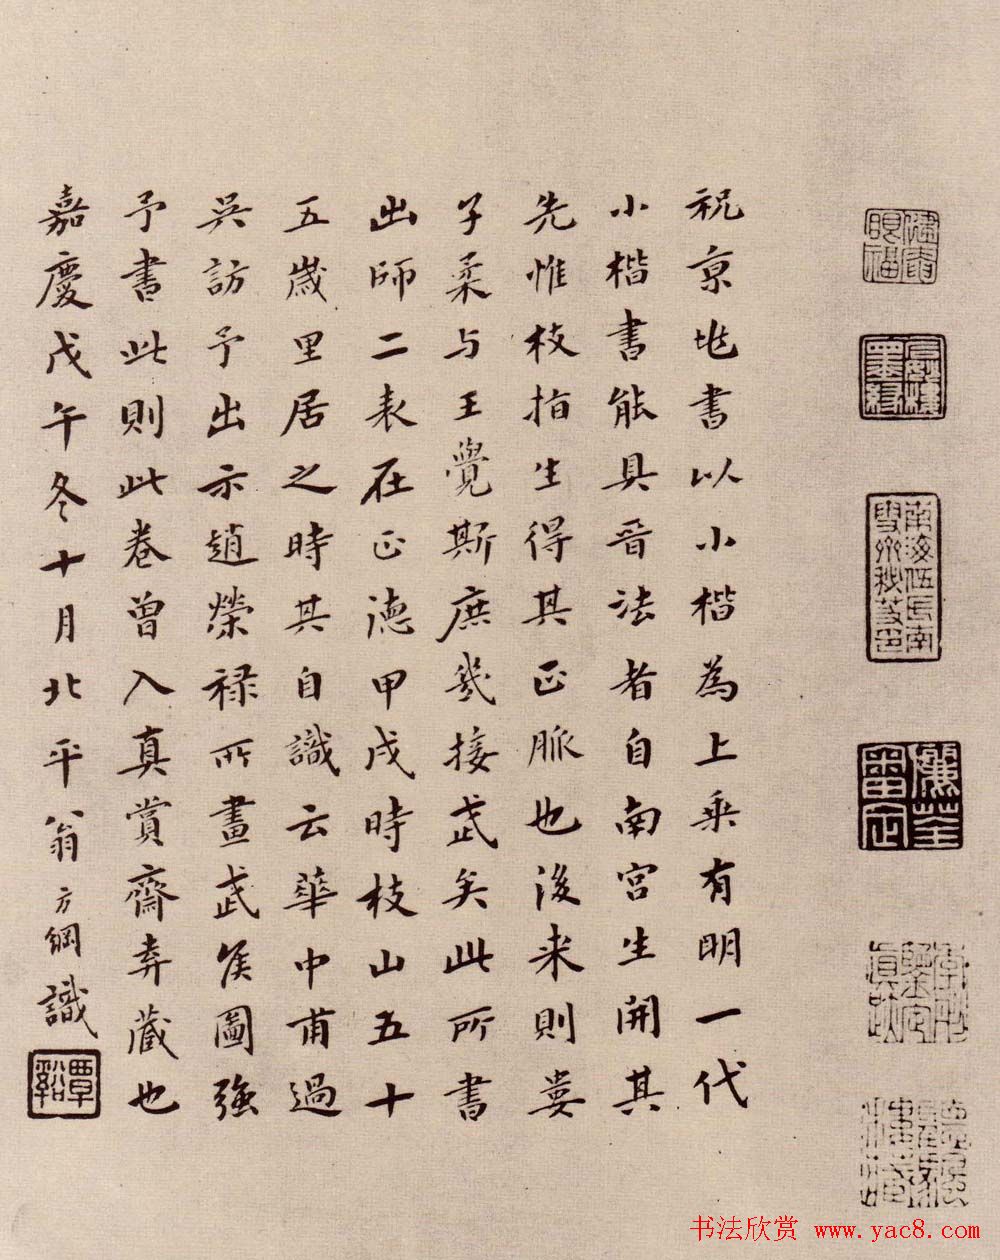 祝京兆書以小楷為上乘有明一代
小楷書能具晉法者自南宮生開其
先惟枝指生得其正脈也後来則婁
子柔与王覺斯庶幾接武矣此所書
出師二表在正德甲戌時枝山五十
五歲里居之時其自識云華中甫過
吳訪予出示趙榮禄所畫武侯圖強
予書此則此卷曾入真賞齋弆藏也
嘉慶戊午冬十月北平翁方綱識
覃谿
南海伍氏南雪齋秘笈印
书法欣赏 www.yac8.com